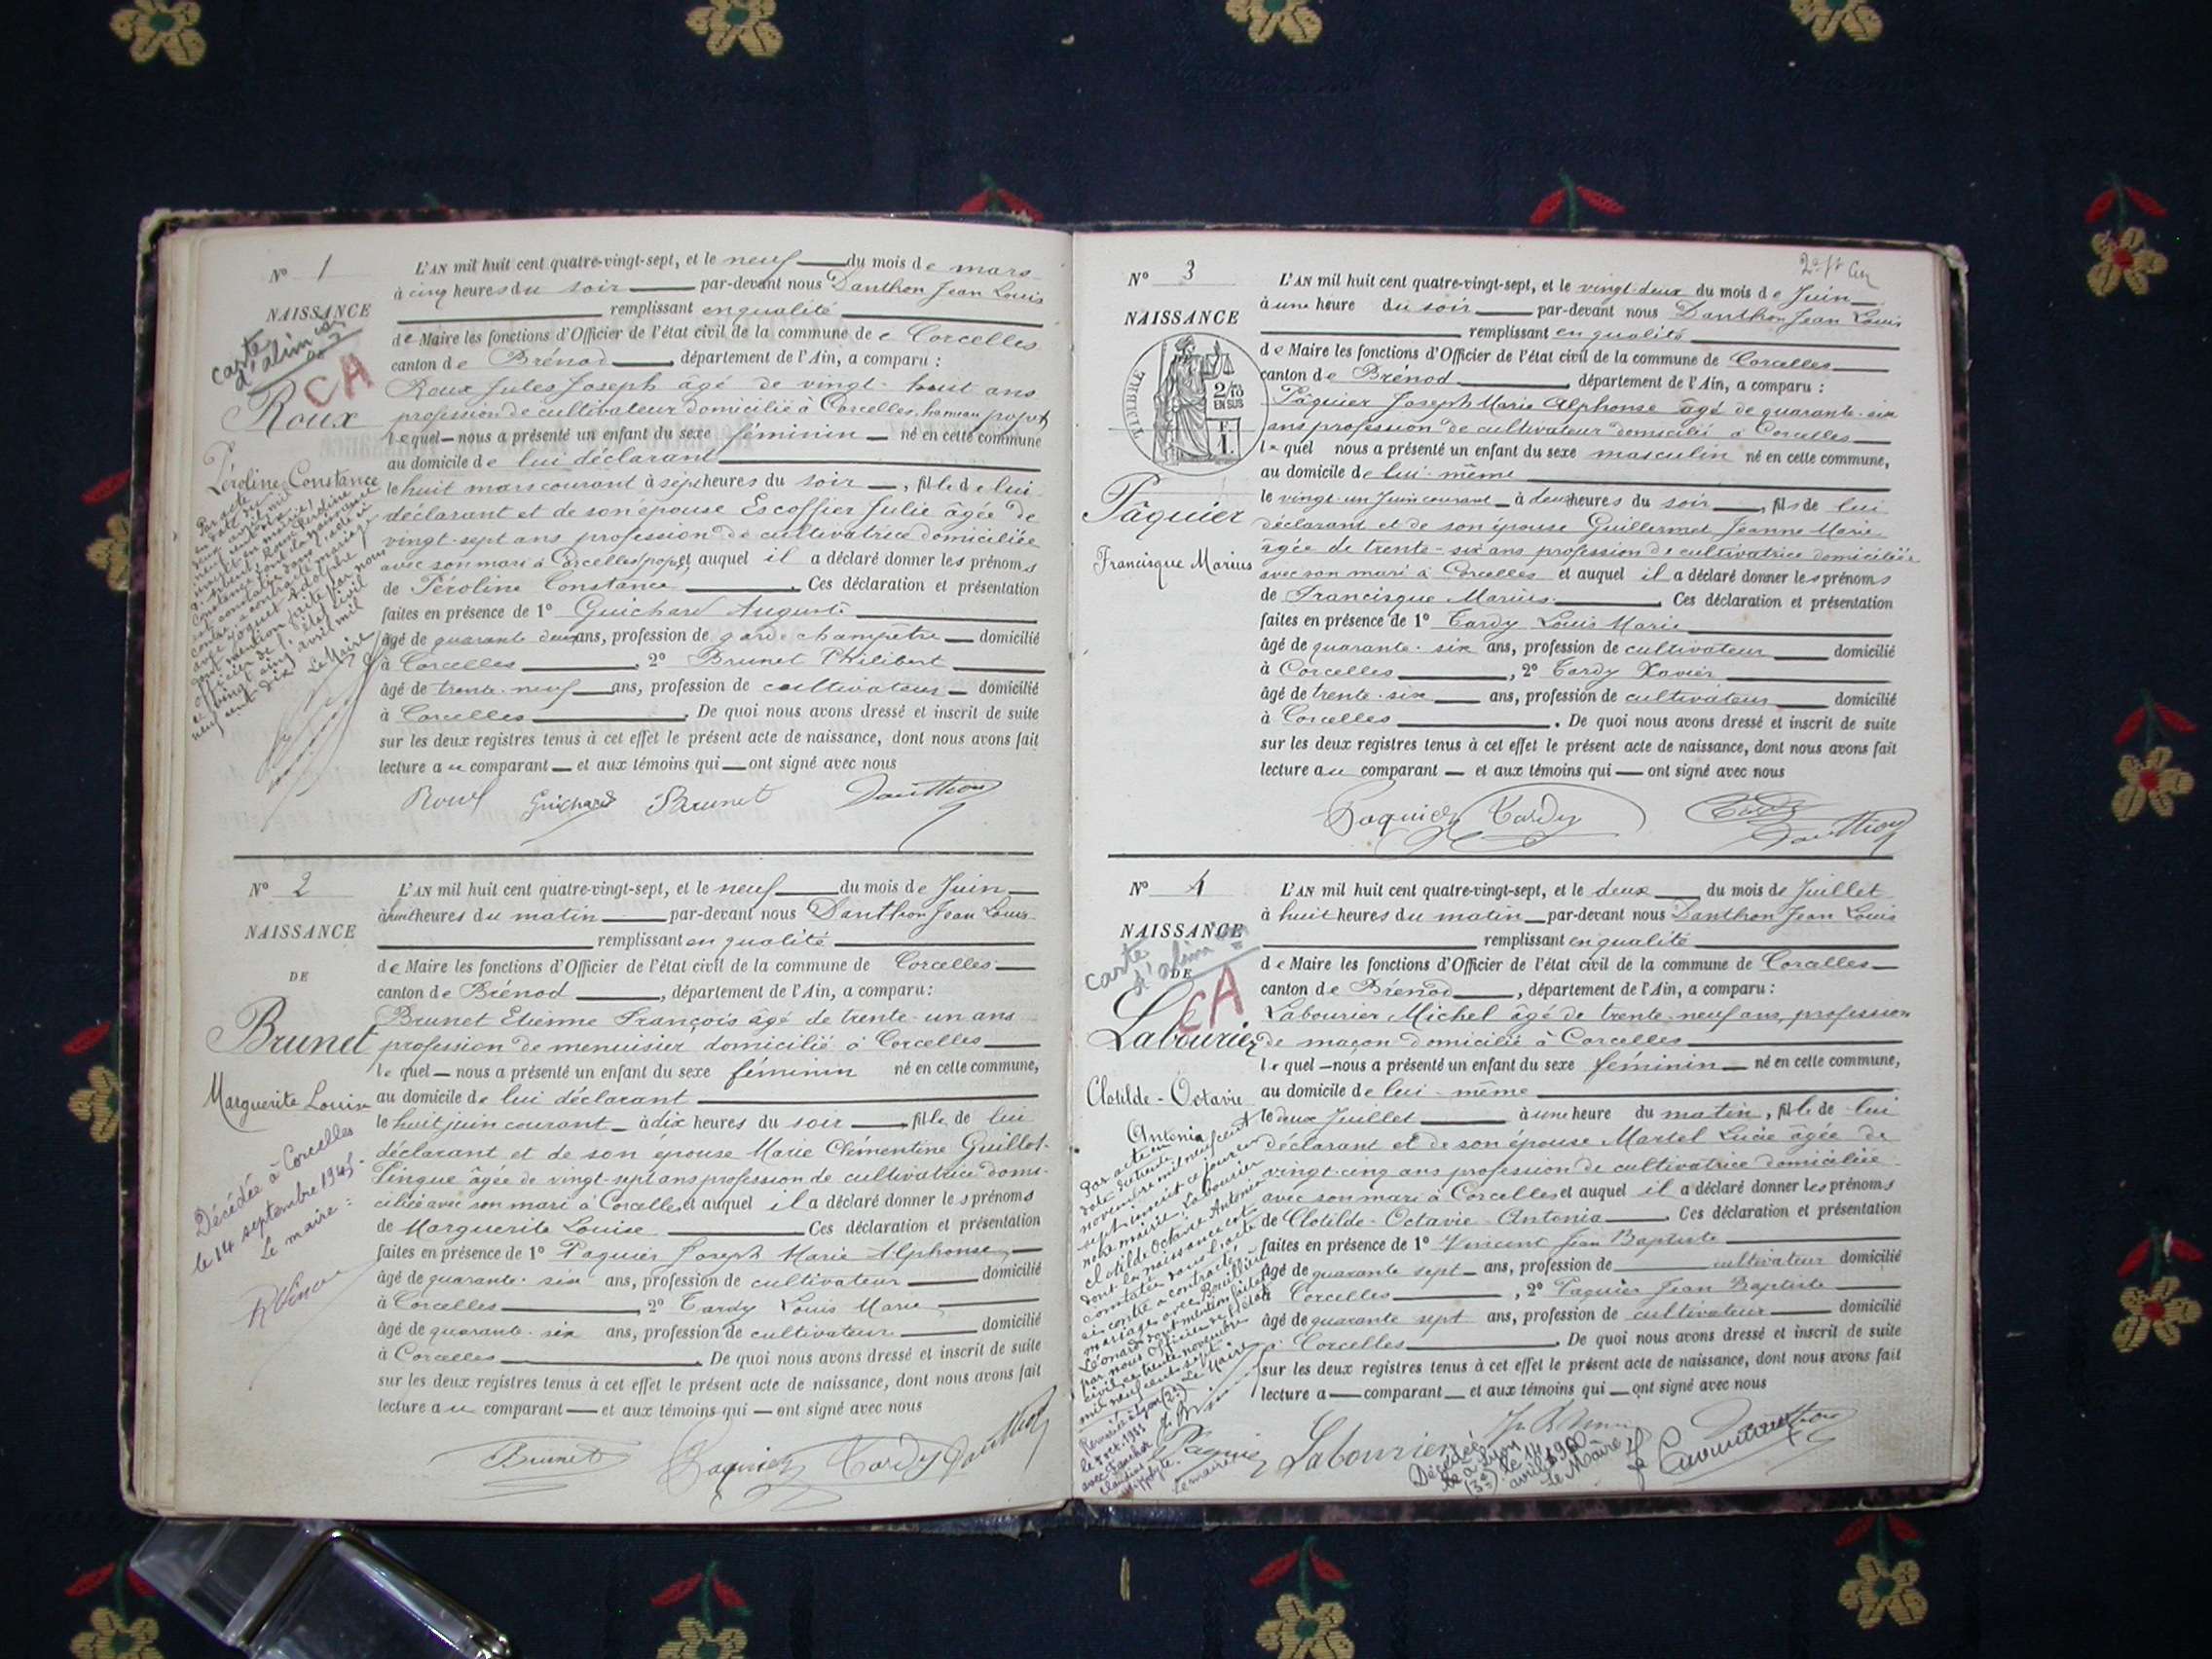 N° 1
NAISSANCE
carte
d'alim
CA
Roux
Péroline Constance
L'AN mil huit cent quatre-vingt-sept, et le neuf du mois de mars
à cinq heures du soir par-devant nous Danthon Jean Louis
remplissant en qualité
de Maire les fonctions d'Officier de l'état civil de la commune de Corcelles
canton de Brénod, département de l'Ain, a comparu :
Roux Jules Joseph âgé de vingt-huit ans
profession de cultivateur domicilié à Corcelles, hameau
lequel nous a présenté un enfant du sexe féminin né en cette commune
au domicile de lui déclarant
le huit mars courant à sept heures du soir, fille de lui
déclarant et de son épouse Escoffier Julie âgée de
vingt-sept ans profession de cultivatrice domiciliée
avec son mari à Corcelles auquel il a déclaré donner les prénoms
de Péroline Constance. Ces déclaration et présentation
faites en présence de 1° Guichard Auguste
âgé de quarante deux ans, profession de garde champêtre domicilié
à Corcelles, 2° Brunet Philibert
âgé de trente-neuf ans, profession de cultivateur domicilié
à Corcelles. De quoi nous avons dressé et inscrit de suite
sur les deux registres tenus à cet effet le présent acte de naissance, dont nous avons fait
lecture au comparant et aux témoins qui ont signé avec nous
Roux Guichard Brunet Danthon
N° 2
NAISSANCE
DE
Brunet
Marguerite Louise
Décédée à Corcelles
le 14 septembre 1945.
Le maire :
L'AN mil huit cent quatre-vingt-sept, et le neuf du mois de Juin
à huit heures du matin par-devant nous Danthon Jean Louis
remplissant en qualité
de Maire les fonctions d'Officier de l'état civil de la commune de Corcelles
canton de Brénod, département de l'Ain, a comparu :
Brunet Etienne François âgé de trente-un ans
profession de menuisier domicilié à Corcelles
lequel nous a présenté un enfant du sexe féminin né en cette commune,
au domicile de lui déclarant
le huit juin courant à dix heures du soir fille de lui
déclarant et de son épouse Marie Clémentine Guillot-
Pingue âgée de vingt-sept ans profession de cultivatrice domi-
ciliée avec son mari à Corcelles et auquel il a déclaré donner les prénoms
de Marguerite Louise Ces déclaration et présentation
faites en présence de 1° Paquier Joseph Marie Alphonse
âgé de quarante-six ans, profession de cultivateur domicilié
à Corcelles, 2° Tardy Louis Marie
âgé de quarante-six ans, profession de cultivateur domicilié
à Corcelles. De quoi nous avons dressé et inscrit de suite
sur les deux registres tenus à cet effet le présent acte de naissance, dont nous avons fait
lecture au comparant et aux témoins qui ont signé avec nous
Brunet Paquier Tardy Danthon
N° 3
NAISSANCE
TIMBRE
2/10
EN SUS
F.
1.
Pâquier
Francisque Marius
L'AN mil huit cent quatre-vingt-sept, et le vingt-deux du mois de Juin
à une heure du soir par-devant nous Danthon Jean Louis
remplissant en qualité
de Maire les fonctions d'Officier de l'état civil de la commune de Corcelles
canton de Brénod, département de l'Ain, a comparu :
Pâquier Joseph Marie Alphonse âgé de quarante-six
ans profession de cultivateur domicilié à Corcelles
lequel nous a présenté un enfant du sexe masculin né en cette commune,
au domicile de lui-même
le vingt-un Juin courant à deux heures du soir, fils de lui
déclarant et de son épouse Guillermet Jeanne Marie
âgée de trente-six ans profession de cultivatrice domiciliée
avec son mari à Corcelles et auquel il a déclaré donner les prénoms
de Francisque Marius. Ces déclaration et présentation
faites en présence de 1° Tardy Louis Marie
âgé de quarante-six ans, profession de cultivateur domicilié
à Corcelles, 2° Tardy Xavier
âgé de trente-six ans, profession de cultivateur domicilié
à Corcelles. De quoi nous avons dressé et inscrit de suite
sur les deux registres tenus à cet effet le présent acte de naissance, dont nous avons fait
lecture au comparant et aux témoins qui ont signé avec nous
Paquier Tardy Tardy Danthon
N° 4
NAISSANCE
DE
carte
d'alim
CA
Labourier
Clotilde-Octavie
Antonia
Par acte en
date du trente
novembre mil neuf cent
sept inscrit ce jour en
notre mairie, Labourier
Clotilde Octavie Antonia
dont la naissance est
constatée dans l'acte
ci-contre a contracté
mariage avec
Léonard dont mention faite
par nous Officier de l'état
civil, ce trente novembre
mil neuf cent sept
Le Maire
Remariée à Lyon (2e)
le 5 oct. 1935
avec
Claudius
Hippolyte.
Le maire
Paquier
L'AN mil huit cent quatre-vingt-sept, et le deux du mois de Juillet
à huit heures du matin par-devant nous Danthon Jean Louis
remplissant en qualité
de Maire les fonctions d'Officier de l'état civil de la commune de Corcelles
canton de Brénod, département de l'Ain, a comparu :
Labourier Michel âgé de trente-neuf ans, profession
de maçon domicilié à Corcelles
lequel nous a présenté un enfant du sexe féminin né en cette commune,
au domicile de lui-même
le deux Juillet à une heure du matin, fille de lui
déclarant et de son épouse Martel Lucie âgée de
vingt-cinq ans profession de cultivatrice domiciliée
avec son mari à Corcelles et auquel il a déclaré donner les prénoms
de Clotilde-Octavie-Antonia. Ces déclaration et présentation
faites en présence de 1° Vincent Jean Baptiste
âgé de quarante sept ans, profession de cultivateur domicilié
à Corcelles, 2° Paquier Jean Baptiste
âgé de quarante sept ans, profession de cultivateur domicilié
à Corcelles. De quoi nous avons dressé et inscrit de suite
sur les deux registres tenus à cet effet le présent acte de naissance, dont nous avons fait
lecture a comparant et aux témoins qui ont signé avec nous
Labourier Danthon
Décédée
à Lyon
(3e) le 14
avril 1960
Le Maire